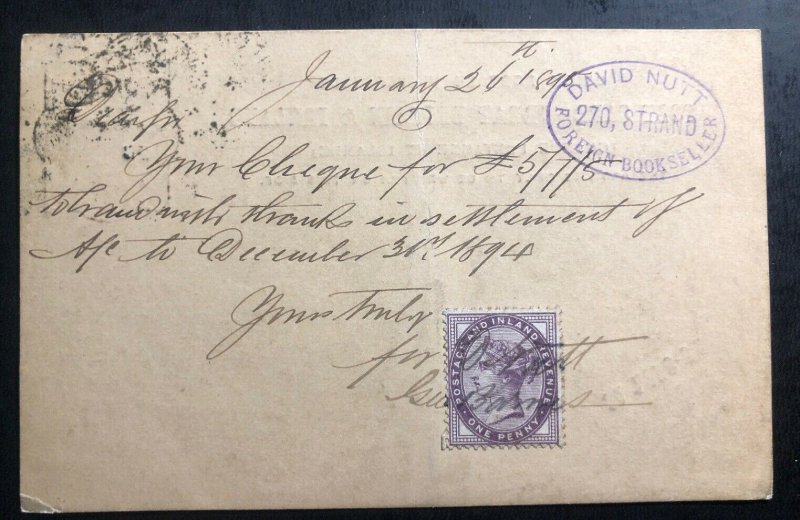 January 26th 1895
DAVID NUTT
270, STRAND
FOREIGN BOOKSELLER
Dear Sir
Your Cheque for £5/7/5
to hand with thanks in settlement of
A/c to December 31st 1894
Yours truly
for D. Nutt
POSTAGE AND INLAND REVENUE
ONE PENNY